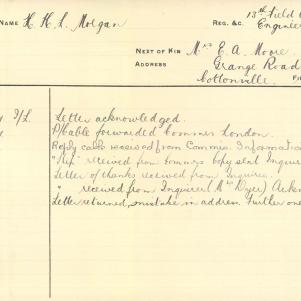 NAME H. H. L. Morgan
REG. &C. 13th Field C
Engineer
NEXT OF KIN Mrs E. A. Moore
ADDRESS Grange Road
Cottonville
Letter acknowledged.
P/cable forwarded Commrs London.
Reply cable received from Commrs. Information
received from Commrs copy sent Inquir
Letter of thanks received from Inquirer.
" received from Inquirer (Mrs Dyer) Ackn
Letter returned, mistake in address. Further one